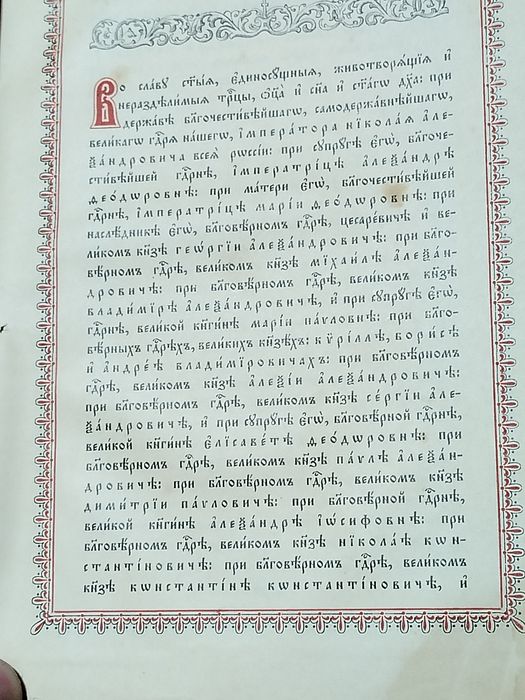 Во славу ст҃ыѧ, є҆диносꙋщныѧ, животворѧщїѧ и҆
нераздѣлимыѧ трⷪ҇цы, ѻ҆ц҃а̀ и҆ сн҃а и҆ ст҃а́гѡ дх҃а: при
державѣ блгⷭ҇очестивѣ́йшагѡ, самодержавнѣ́йшагѡ,
великагѡ гдⷭ҇рѧ нашегѡ, і҆мпера́тора нїкола́ѧ а҆ле-
ѯа́ндровича всеѧ̀ рѡссі́и: при сꙋпрꙋ́гѣ є҆гѡ̀, блгⷭ҇оче-
сти́вѣйшей гдⷭ҇рнѣ, і҆мператрі́цѣ а҆леѯа́ндрѣ
ѳео́дѡровнѣ: при ма́тери є҆гѡ̀, блгⷭ҇очести́вѣйшей
гдⷭ҇рнѣ, і҆мператрі́цѣ марі́и ѳео́дѡровнѣ: при
наслѣ́дникѣ є҆гѡ̀, блгⷭ҇овѣ́рномъ гдⷭ҇рѣ, цесаре́вичѣ и҆ ве-
ли́комъ кн҃зѣ геѡ́ргїи а҆леѯа́ндровичѣ: при блгⷭ҇о-
вѣ́рномъ гдⷭ҇рѣ, вели́комъ кн҃зѣ мїхаи́лѣ а҆леѯа́н-
дровичѣ: при блгⷭ҇овѣ́рномъ гдⷭ҇рѣ, вели́комъ кн҃зѣ
влади́мїрѣ а҆леѯа́ндровичѣ, и҆ при сꙋпрꙋ́гѣ є҆гѡ̀,
гдⷭ҇рнѣ, вели́кой кнг҃и́нѣ марі́и па́ѵловнѣ: при блгⷭ҇о-
вѣ́рныхъ гдⷭ҇рѣхъ, вели́кихъ кн҃зѣхъ: кѷрі́ллѣ, бори́сѣ
и҆ а҆ндре́ѣ влади́мїровичахъ: при блгⷭ҇овѣ́рномъ
гдⷭ҇рѣ, вели́комъ кн҃зѣ а҆леѯі́и а҆леѯа́ндровичѣ:
при блгⷭ҇овѣ́рномъ гдⷭ҇рѣ, вели́комъ кн҃зѣ се́ргїи а҆ле-
ѯа́ндровичѣ, и҆ при сꙋпрꙋ́гѣ є҆гѡ̀, блгⷭ҇овѣ́рной гдⷭ҇рнѣ,
вели́кой кнг҃и́нѣ є҆лїсаве́тѣ ѳео́дѡровнѣ: при
блгⷭ҇овѣ́рномъ гдⷭ҇рѣ, вели́комъ кн҃зѣ па́ѵлѣ а҆леѯа́н-
дровичѣ: при блгⷭ҇овѣ́рномъ гдⷭ҇рѣ, вели́комъ кн҃зѣ
дими́трїи па́ѵловичѣ: при блгⷭ҇овѣ́рной гдⷭ҇рнѣ,
вели́кой кнг҃и́нѣ а҆леѯа́ндрѣ і҆ѡ́сифовнѣ: при
блгⷭ҇овѣ́рномъ гдⷭ҇рѣ, вели́комъ кн҃зѣ нїкола́ѣ кѡн-
стантї́новичѣ: при блгⷭ҇овѣ́рномъ гдⷭ҇рѣ, вели́комъ
кн҃зѣ кѡнстантї́нѣ кѡнстантї́новичѣ, и҆